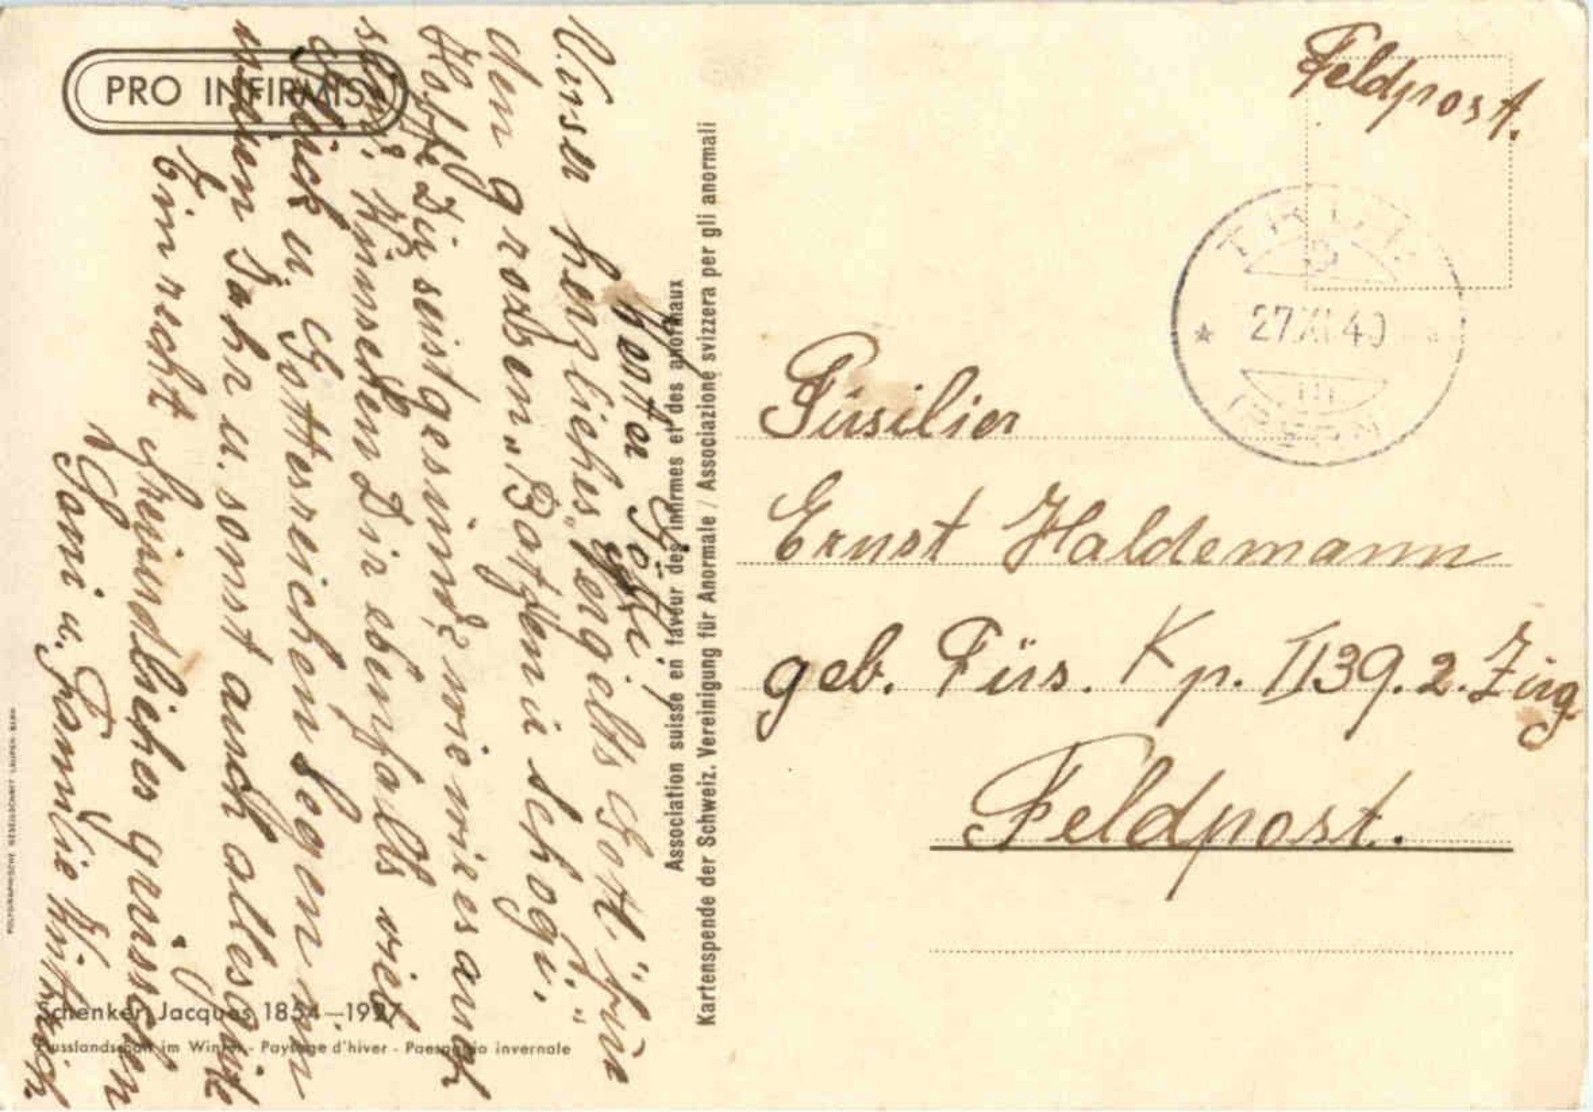 PRO INFIRMIS
Werter Götti!
Unser herzliches „Vergelts Gott," für
den grossen „Batzen i Schogi."
Hoffe Du seist gesund, wie wir es auch
sind. Wünschen Dir ebenfalls viel
Glück u. Gottesreichen Segen im
neuen Jahr u. sonst auch alles Gute
Ein recht freundliches grüsschen
v. Hani u. Familie
Schenker, Jacques 1854—1927
Flusslandschaft im Winter - Paysage d'hiver - Paesaggio invernale
POLYGRAPHISCHE GESELLSCHAFT LAUPEN-BERN
Association suisse en faveur des infirmes et des anormaux
Kartenspende der Schweiz. Vereinigung für Anormale / Associazione svizzera per gli anormali
Feldpost.
27.XI.40
(BERN)
Füsilier
Ernst Haldemann
geb. Füs. Kp. II 39. 2. Zug
Feldpost.